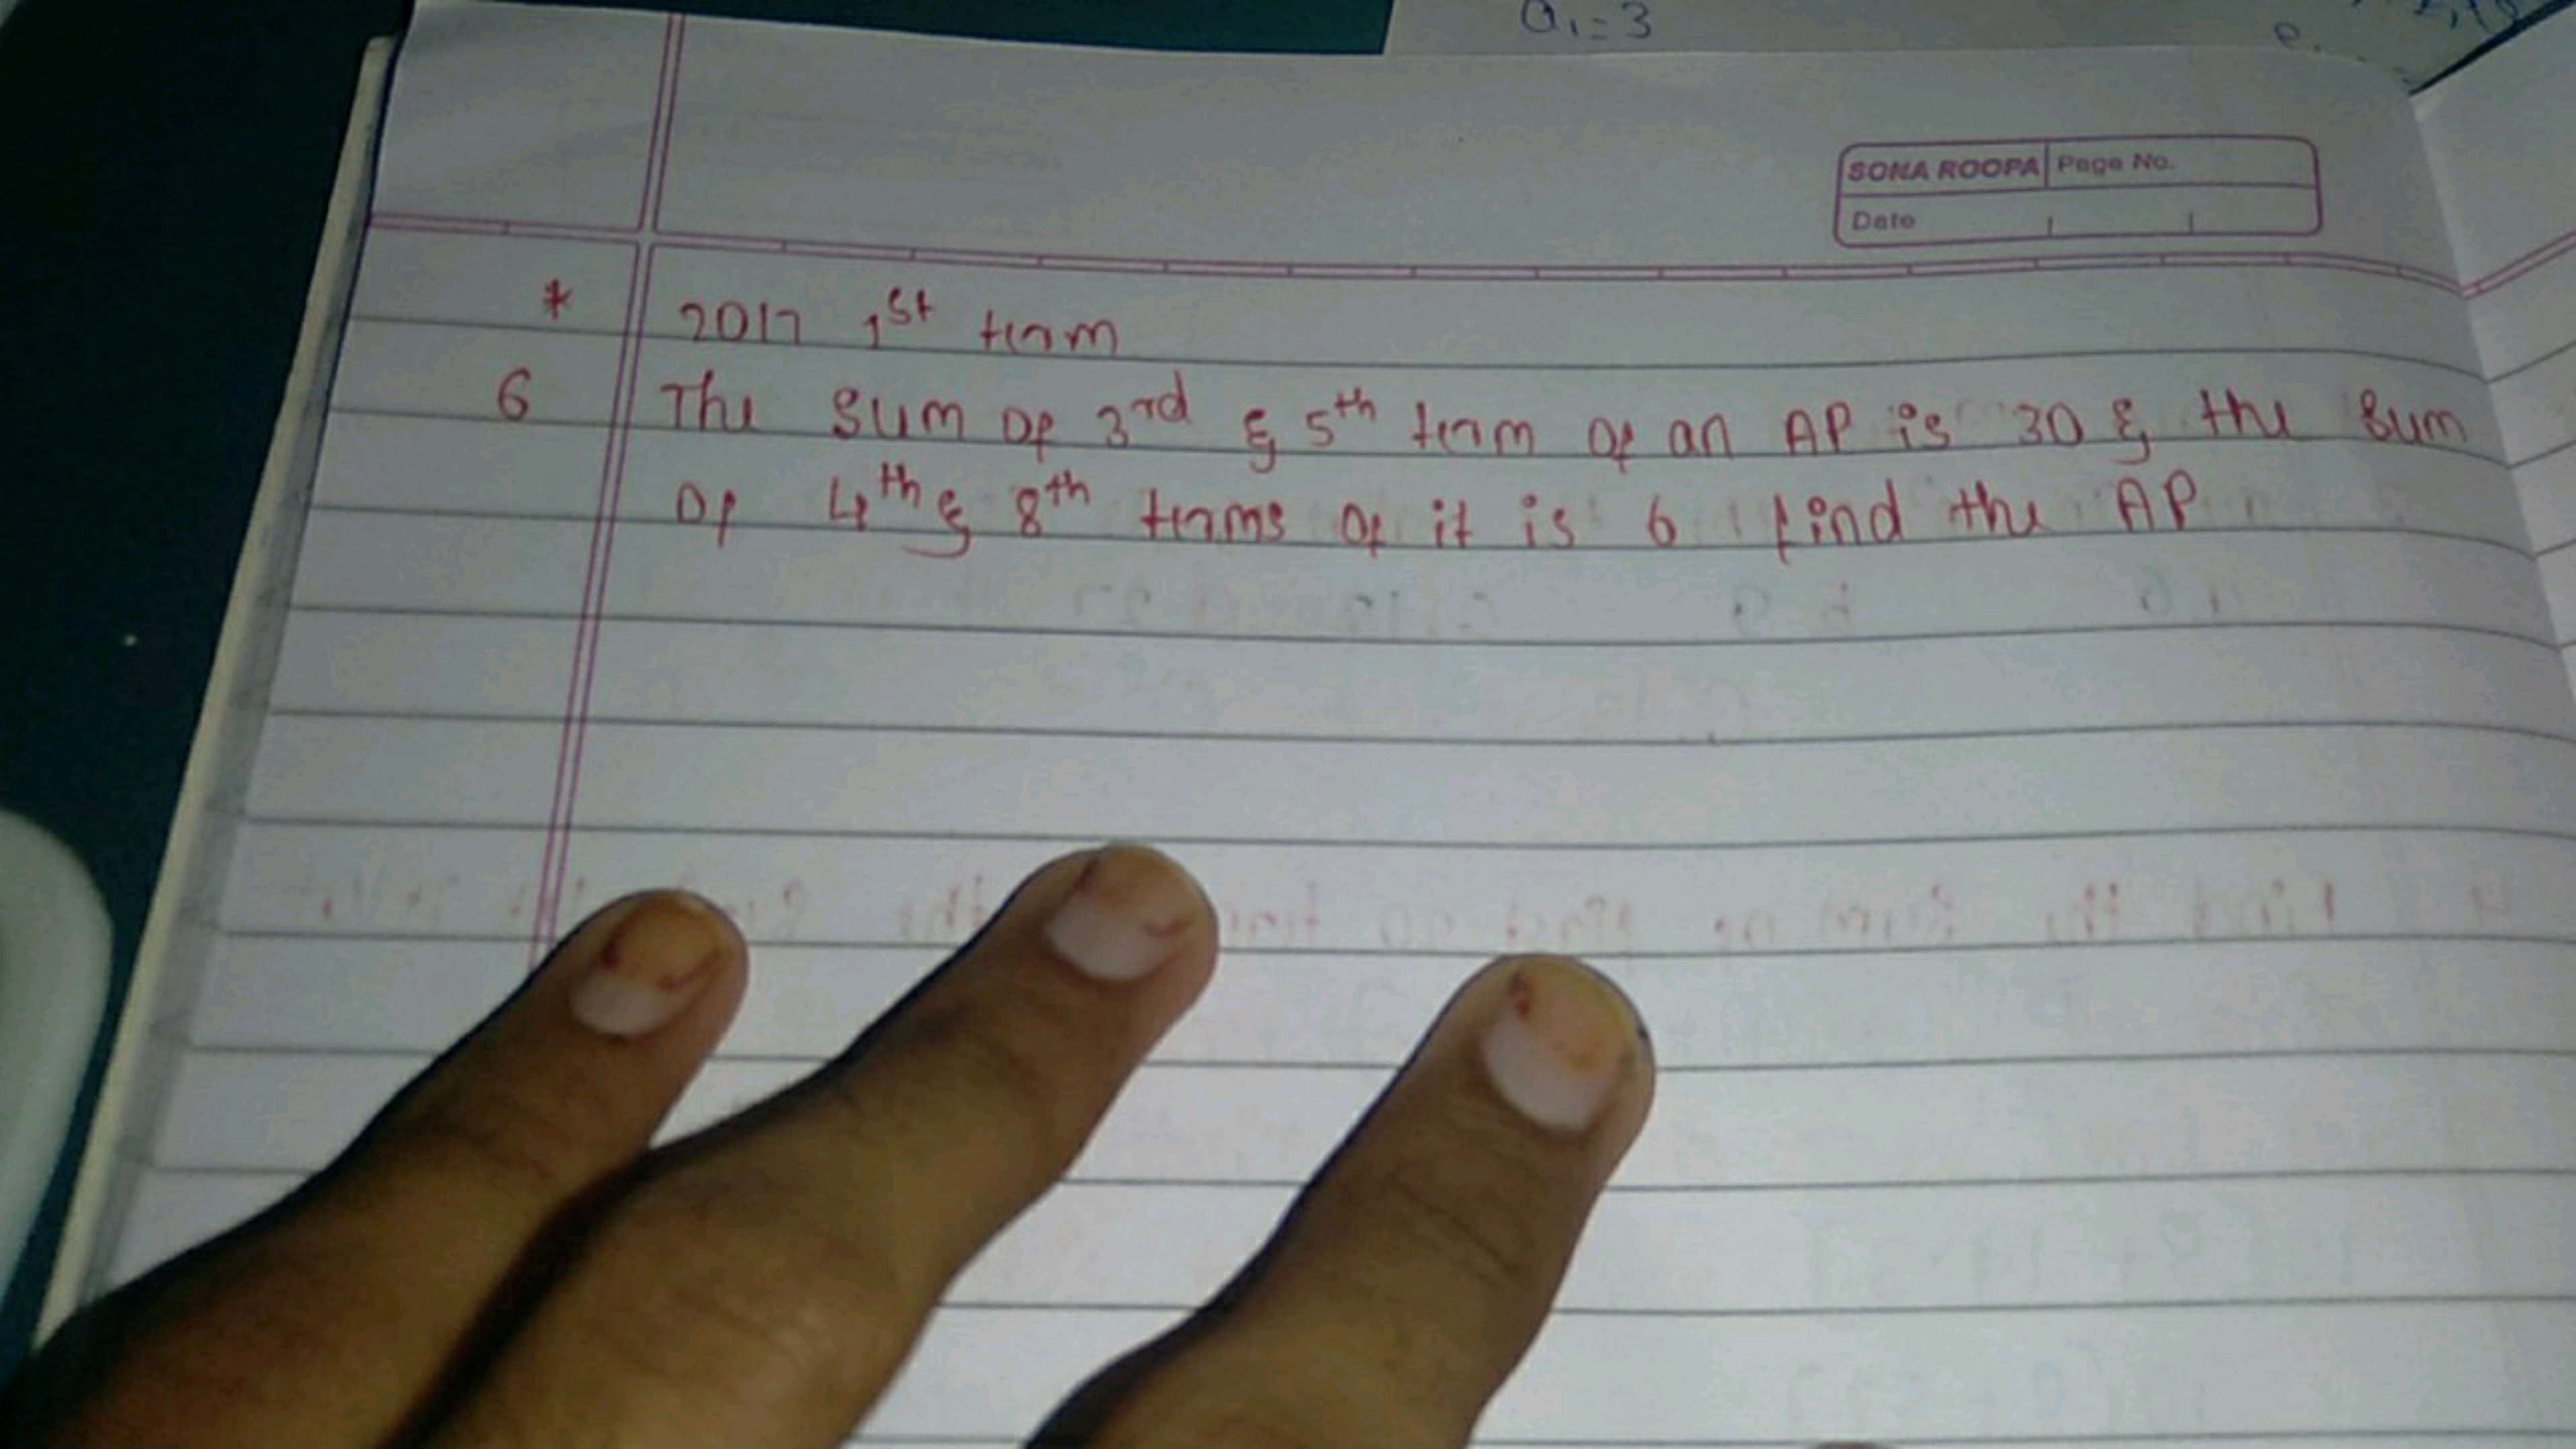 a₁=3
SONA ROOPA Page No.
Date
* 2017 1st term
6 The sum of 3rd & 5th term of an AP is 30 & the sum
of 4th & 8th terms of it is 6 find the AP